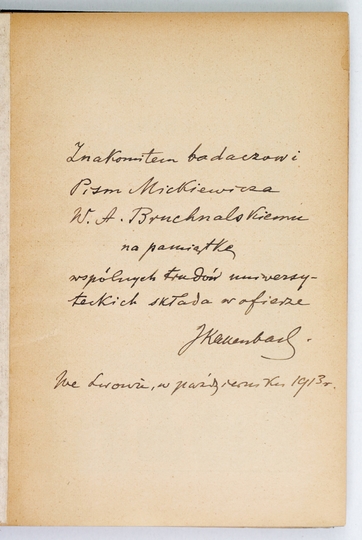 Znakomitem badaczowi
Pism Mickiewicza
W. A. Bruchnalskiemu
na pamiątkę
wspólnych trudów uniwersy-
teckich składa w ofierze
JKallenbach.
We Lwowie, w październiku 1913 r.